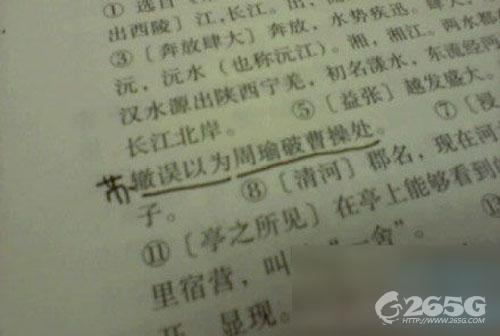 ① 选自
出西陵〕江,长江。出,
③〔奔放肆大〕奔放,水势疾迅。肆大,
沅,沅水(也称沅江)。湘,湘江。两水都
汉水源出陕西宁羌,初名漾水,东流经
长江北岸。 ⑤〔益张〕越发盛大。 ⑦〔浸
苏辙误以为周瑜破曹操处。
⑧〔清河〕郡名,现在河
子。
⑪〔亭之所见〕在亭上能够看到
里宿营,叫 “一舍”。
显现。
265G
HTTP://WWW.265G.COM